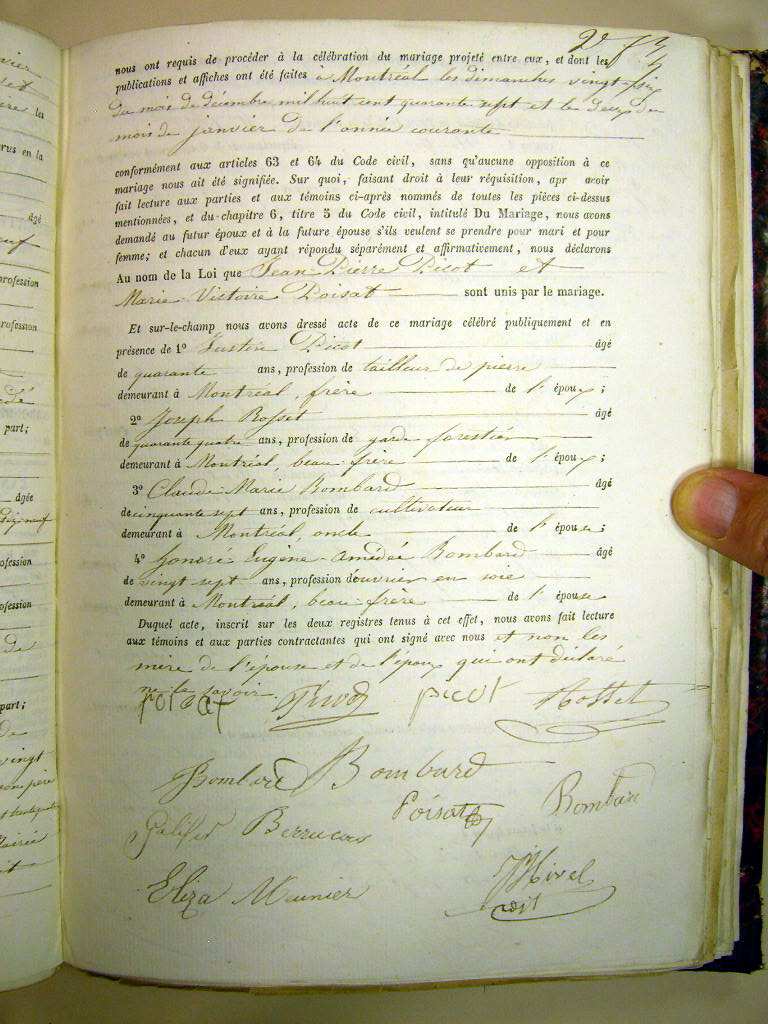 nous ont requis de procéder à la célébration du mariage projeté entre eux, et dont les
publications et affiches ont été faites à Montréal les dimanches vingt-six
du mois de décembre mil huit cent quarante sept et le deux du
mois de janvier de l'année courante
conformément aux articles 63 et 64 du Code civil, sans qu'aucune opposition à ce
mariage nous ait été signifiée. Sur quoi, faisant droit à leur réquisition, apr avoir
fait lecture aux parties et aux témoins ci-après nommés de toutes les pièces ci-dessus
mentionnées, et du chapitre 6, titre 5 du Code civil, intitulé Du Mariage, nous avons
demandé au futur époux et à la future épouse s'ils veulent se prendre pour mari et pour
femme; et chacun d'eux ayant répondu séparément et affirmativement, nous déclarons
Au nom de la Loi que Jean-Pierre Picot et
Marie-Victoire Poisat sont unis par le mariage.
Et sur-le-champ nous avons dressé acte de ce mariage célébré publiquement et en
présence de 1º Justin Picot âgé
de quarante ans, profession de tailleur de pierre
demeurant à Montréal, frère de l'époux;
2º Joseph Rosset âgé
de quarante quatre ans, profession de garde forestier
demeurant à Montréal, beau-frère de l'époux;
3º Claude-Marie Bombard âgé
de cinquante sept ans, profession de cultivateur
demeurant à Montréal, oncle de l'épouse;
4º honoré Eugène Amédée Bombard âgé
de vingt sept ans, profession d'ouvrier en soie
demeurant à Montréal, beau-frère de l'épouse
Duquel acte, inscrit sur les deux registres tenus à cet effet, nous avons fait lecture
aux témoins et aux parties contractantes qui ont signé avec nous et non les
mère de l'épouse et de l'époux qui ont déclaré
ne le savoir.
poisat Picot picot Rosset
Bombard Bombard
Poisat Bombard
Eliza Meunier